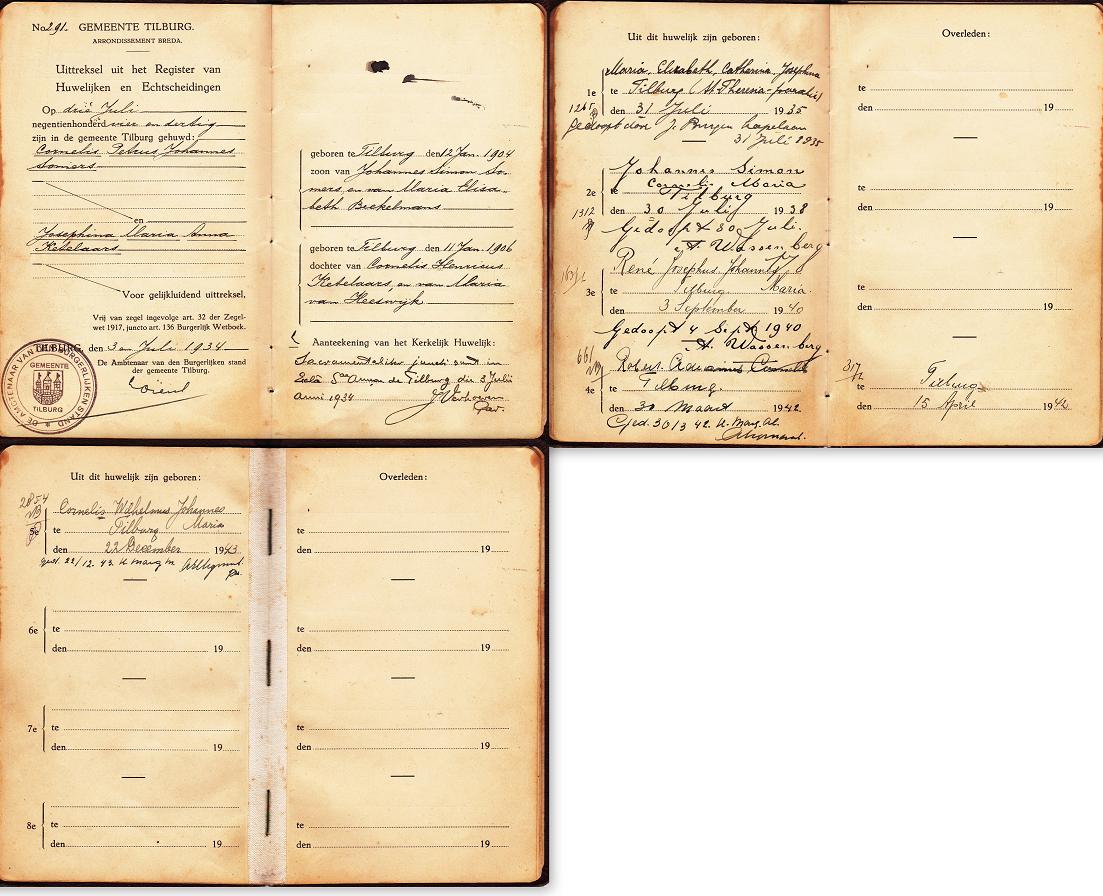 No 291. GEMEENTE TILBURG.
ARRONDISSEMENT BREDA.
Uittreksel uit het Register van
Huwelijken en Echtscheidingen
Op drie Juli
negentienhonderd vier en dertig
zijn in de gemeente Tilburg gehuwd:
Cornelis Petrus Johannes
Somers
en
Josephina Maria Anna
Ketelaars
Voor gelijkluidend uittreksel,
Vrij van zegel ingevolge art. 32 der Zegel-
wet 1917, juncto art. 136 Burgerlijk Wetboek.
TILBURG, den 3en Juli 1934
De Ambtenaar van den Burgerlijken stand
der gemeente Tilburg.
DE AMBTENAAR VAN DEN BURGERLIJKEN STAND
GEMEENTE
TILBURG
geboren te Tilburg den 12 Jan. 1904
zoon van Johannes Simon So-
mers, en van Maria Elisa-
beth Beekelmans
geboren te Tilburg den 11 Jan. 1906
dochter van Cornelis Henricus
Ketelaars, en van Maria
van Heeswijk
Aanteekening van het Kerkelijk Huwelijk:
Sacramentaliter juncti sunt in
de Tilburg die 3 Julii
anni 1934
Uit dit huwelijk zijn geboren:
Maria, Elisabeth, Catharina, Josephina
1e
te Tilburg
1265
den 31 Juli 1935
Gedoopt door J. kapelaan
31 Juli 1935
Johannes Simon
Cornelis Maria
2e te Tilburg
1312
den 30 Julij 1938
Gedoopt 30 Juli
A. Wassenberg
René Josephus Johannes
te Tilburg Maria
3e
3 September 1940
Gedoopt 4 Sept 1940
A. Wassenberg
661
Robert Adrianus Cornelis
te Tilburg.
4e
den 30 Maart 1942
Ged. 30/3 42.
Overleden:
te
den 19
te
den 19
te
den 19
te Tilburg
den 15 April 1942
Uit dit huwelijk zijn geboren:
2854
Cornelis Wilhelmus Johannes
5e te Tilburg Maria
den 22 December 1943
22/12. 43.
6e
te
den 19
7e
te
den 19
8e
te
den 19
Overleden:
te
den 19
te
den 19
te
den 19
te
den 19